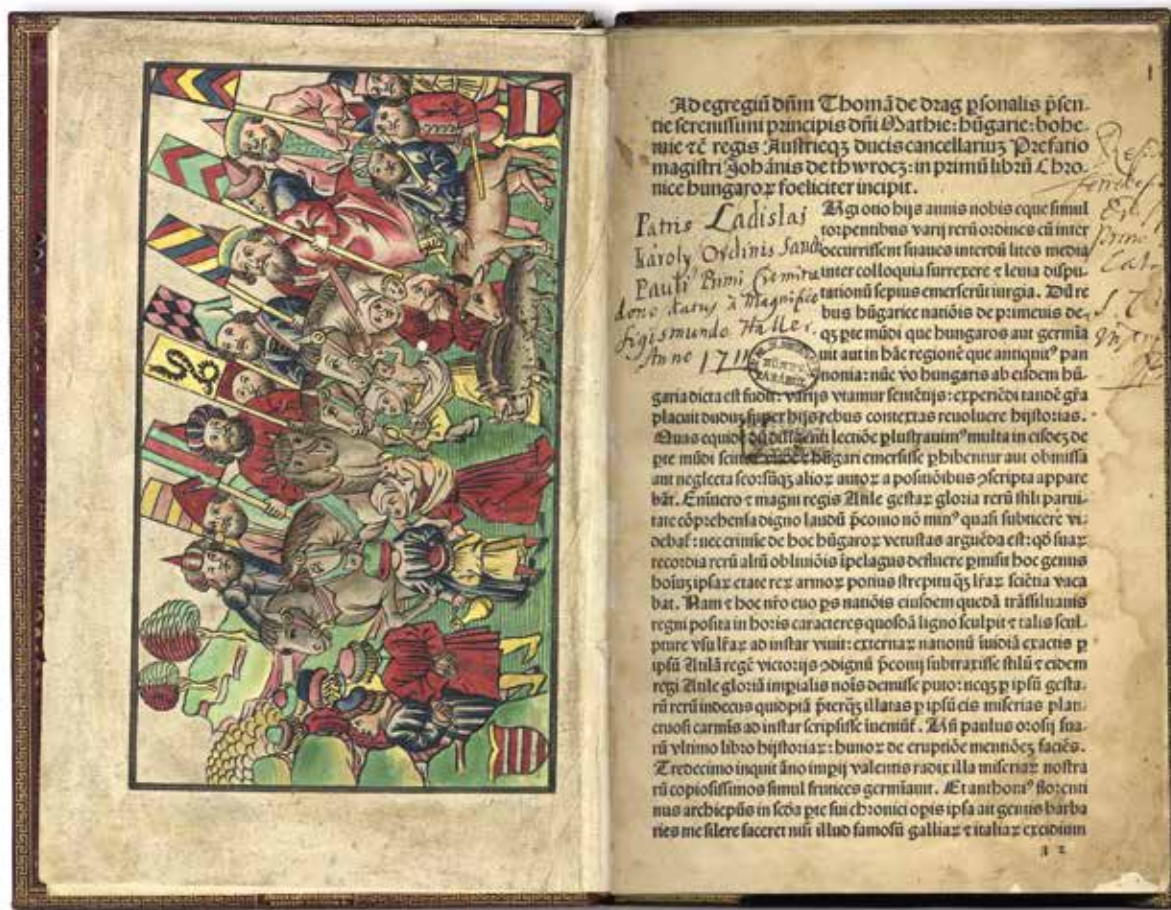 1
Ad egregiũ dñm Thomã de drag ꝑsonalis p̃sen-
tie serenissimi principis dñi Mathie: hũgarie: bohe-
mie ⁊c̃ regis Austrieqꝫ ducis cancellariuꝫ Prefatio
magistri Johãnis de thwrocz: in primũ librũ Chro-
nice hungaroꝝ foeliciter incipit.
Patris Ladislai
Karoly Ordinis Sancti
Pauli Primi Eremitae
dono datus à Magnifico
Sigismundo Haller.
Anno 1711
hijs annis nobis eque simul
torpentibus varij rerũ ordines cũ inter
occurrissent suaues interdũ lites media
inter colloquia surrexere ⁊ leuia dispu-
tationũ sepius emerserũt iurgia. Dũ re
bus hũgarice natiõis de primeuis de-
qꝫ ꝑte mũdi que hungaros aut germĩa
uit aut in hãc regionẽ que antiquitꝰ pan
nonia: nũc ꝟo hungaris ab eisdem hũ-
garia dicta est fudit: varijs vtamur sentẽtijs: experiẽdi tandẽ gr̃a
placuit dudũ super hijs rebus contextas reuoluere hijstorias.
Quas equidẽ dũ diligenti lectiõe plustrauimꝰ multa in eisdeꝫ de
ꝑte mũdi hũgari emersisse ꝑhibentur aut obmissa
aut neglecta seorsũqꝫ alioꝝ autoꝝ a positiõibus ↄscripta appare
bãt. Enĩuero ⁊ magni regis Atile gestaꝝ gloria rerũ stili parui-
tate cõprehensa digno laudũ p̃conio nõ minꝰ quasi subticere vi-
debat̃: nec crimĩe de hoc hũgaroꝝ vetustas arguẽda est: qđ suaꝝ
recordia rerũ altũ obliuiõis ĩpelagus defluere ꝑmisit hoc genus
hoĩuꝫ ipsaꝝ etate reꝝ armoꝝ potius strepitu qꝫ lr̃aꝝ sciẽtia vaca
bat. Nam ⁊ hoc nr̃o euo ꝑs natiõis eiusdem quedã trãssiluanis
regni posita in horis caracteres quosdã ligno sculpit ⁊ talis scul-
pture vsu lr̃aꝝ ad instar viuit: externaꝝ nationũ ĩuidiã exactis ꝑ
ipsũ Atilã regẽ victorijs ↄdignũ p̃conij subtraxisse stilũ ⁊ eidem
regi Atile gloriã imꝑialis noĩs demisse puto: neqꝫ ꝑ ipsũ gesta-
rũ rerũ indecus quidpiã p̃terqꝫ illatas ꝑ ipsũ eis miserias plan
ctuosi carmĩs ad instar scripsisse ĩueniũt. Nã paulus orosij sua-
rũ vltimo libro hijstoriaꝝ: hunoꝝ de eruptiõe mentiõeꝫ faciẽs.
Tredecimo inquit ãno imperij valentis radix illa miseriaꝝ nostra
rũ copiosissimos simul frutices germĩauit. Et anthoniꝰ florenti
nus archiep̃us in scđa ꝑte sui chronici opis ipsa ait gentis barba
ries me silere faceret nisi illud famosũ galliaꝝ ⁊ italiaꝝ excidium
a 2